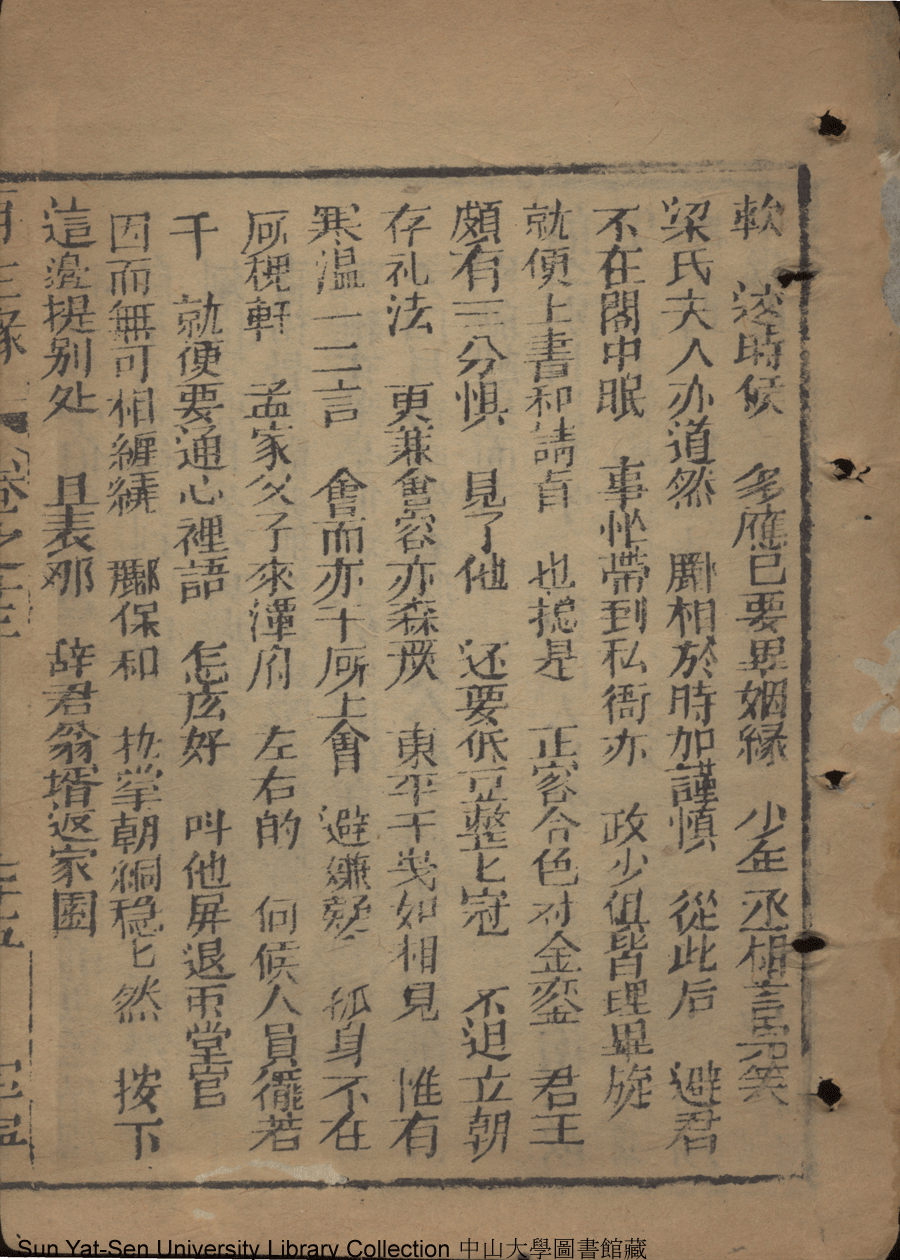 軟 這時候 多應已要畢姻緣 少年丞相言完笑
梁氏夫人亦道然 酈相於時加謹慎 從此后 避君
不在閣中眠 事忙帶到私衙亦 政少俱皆理畢旋
就便上書和請旨 也搃是 正容合色对金鑾 君王
頗有三分惧 見了他 还要低豆整匕冠 不迫立朝
存礼法 更蒹會容亦森厥 東平王奚如相見 惟有
寒溫一二言 會而亦于厛上會 避嫌疑 孤身不在
厛稅軒 孟家父子來渾府 左右的 伺候人員擺若
千 就便要通心裡語 怎庅好 叫他屏退兩堂官
因而無可相纏繞 酈保和 执掌朝綱穏匕然 按下
這邊提别处 且表那 辞君翁壻返家園
再生緣 卷之十三
Sun Yat-Sen University Library Collection 中山大學圖書館藏